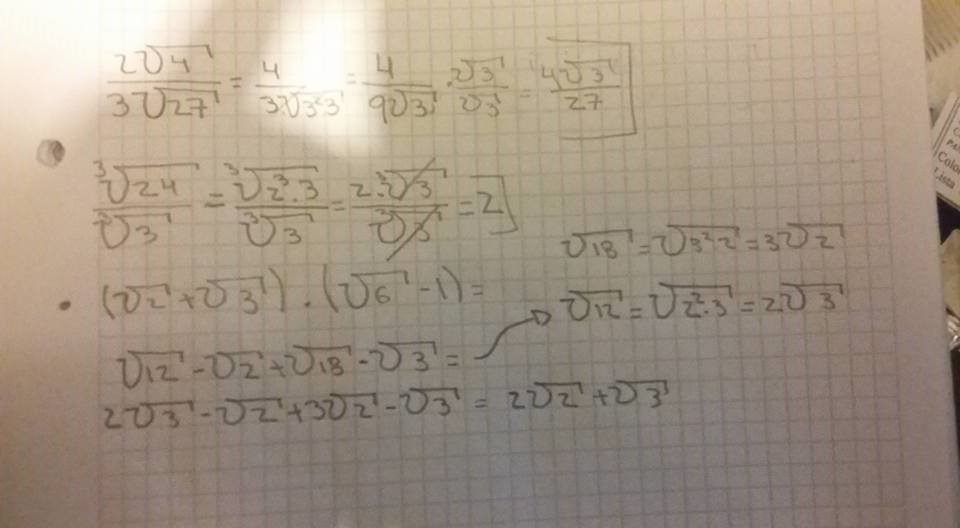 2√4 / 3√27 = 4 / 3·√3²·3 = 4 / 9√3 · √3 / √3 = 4√3 / 27
³√24 / ³√3 = ³√2³·3 / ³√3 = 2·³√3 / ³√3 = 2
√18 = √3²·2 = 3√2
• (√2 + √3) · (√6 - 1) =
√12 = √2²·3 = 2√3
√12 - √2 + √18 - √3 =
2√3 - √2 + 3√2 - √3 = 2√2 + √3
Lista